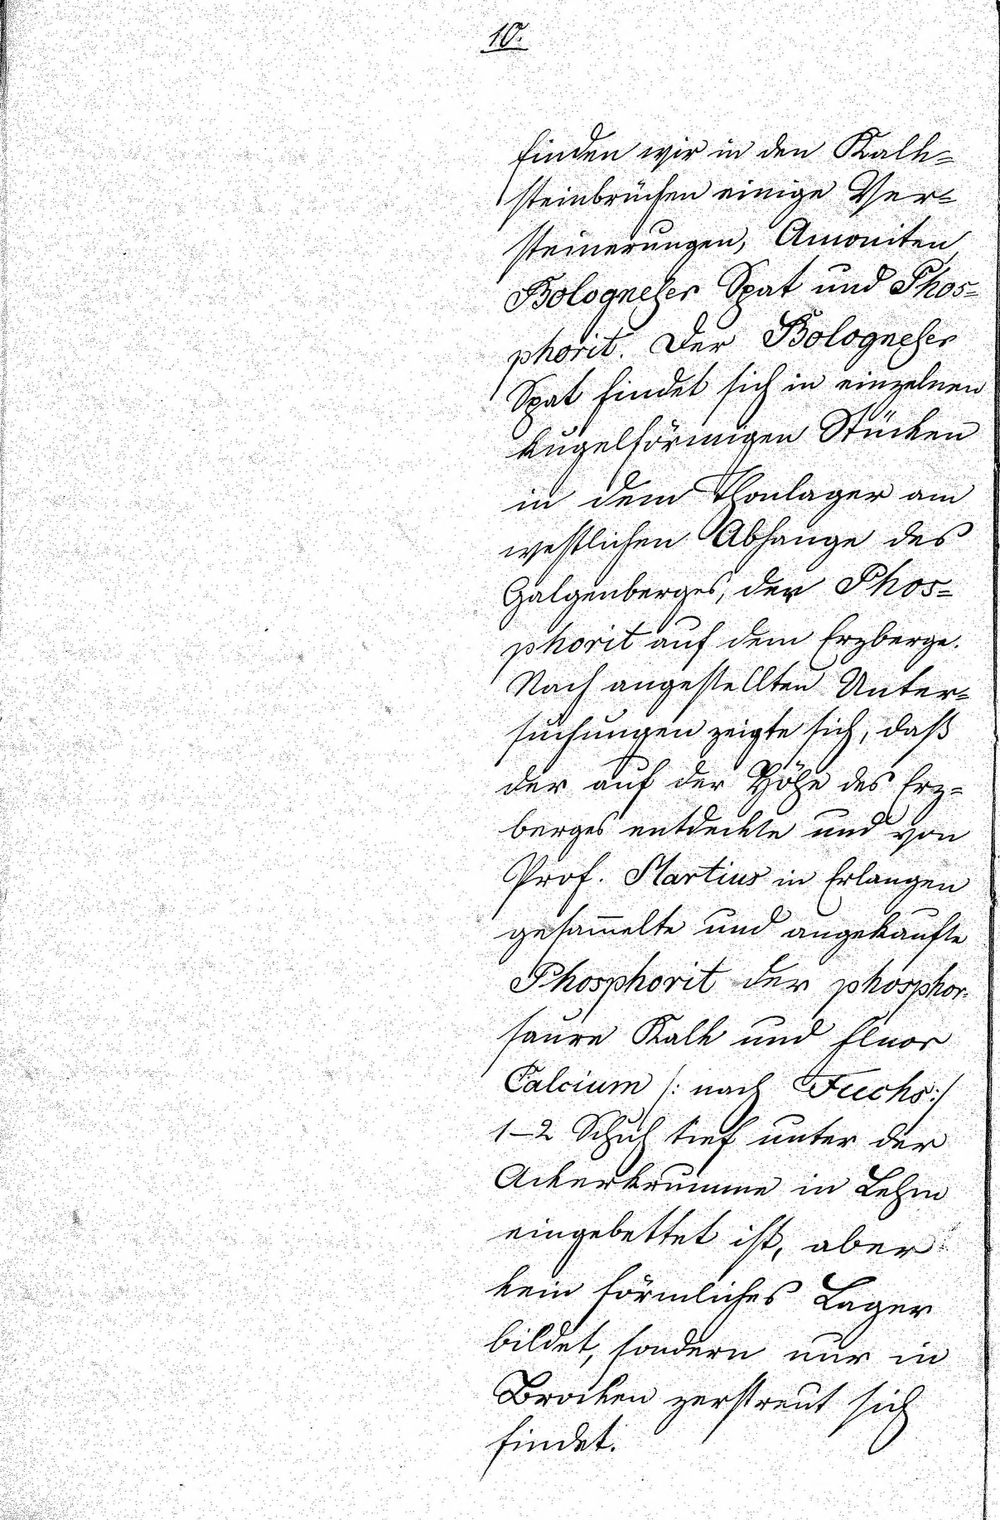 10.
finden wir in den Kalk=
steinbrüchen einige Ver=
steinerungen, Amoniten,
Bologneser Spat und Phos=
phorit. Der Bologneser
Spat findet sich in einzelnen
kugelförmigen Stücken
in dem Thonlager am
westlichen Abhange des
Galgenberges, der Phos=
phorit auf dem Erzberge.
Nach angestellten Unter=
suchungen zeigte sich, daß
der auf der Höhe des Erz=
berges entdeckte und von
Prof. Martius in Erlangen
gesam̅elte und angekaufte
Phosphorit der phosphor=
saure Kalk und Fluor
Calcium /: nach Fuchs :/
1–2 Schuh tief unter der
Ackerkrumme in Lehm
eingebettet ist, aber
kein förmliches Lager
bildet, sondern nur in
Brocken zerstreut sich
findet.